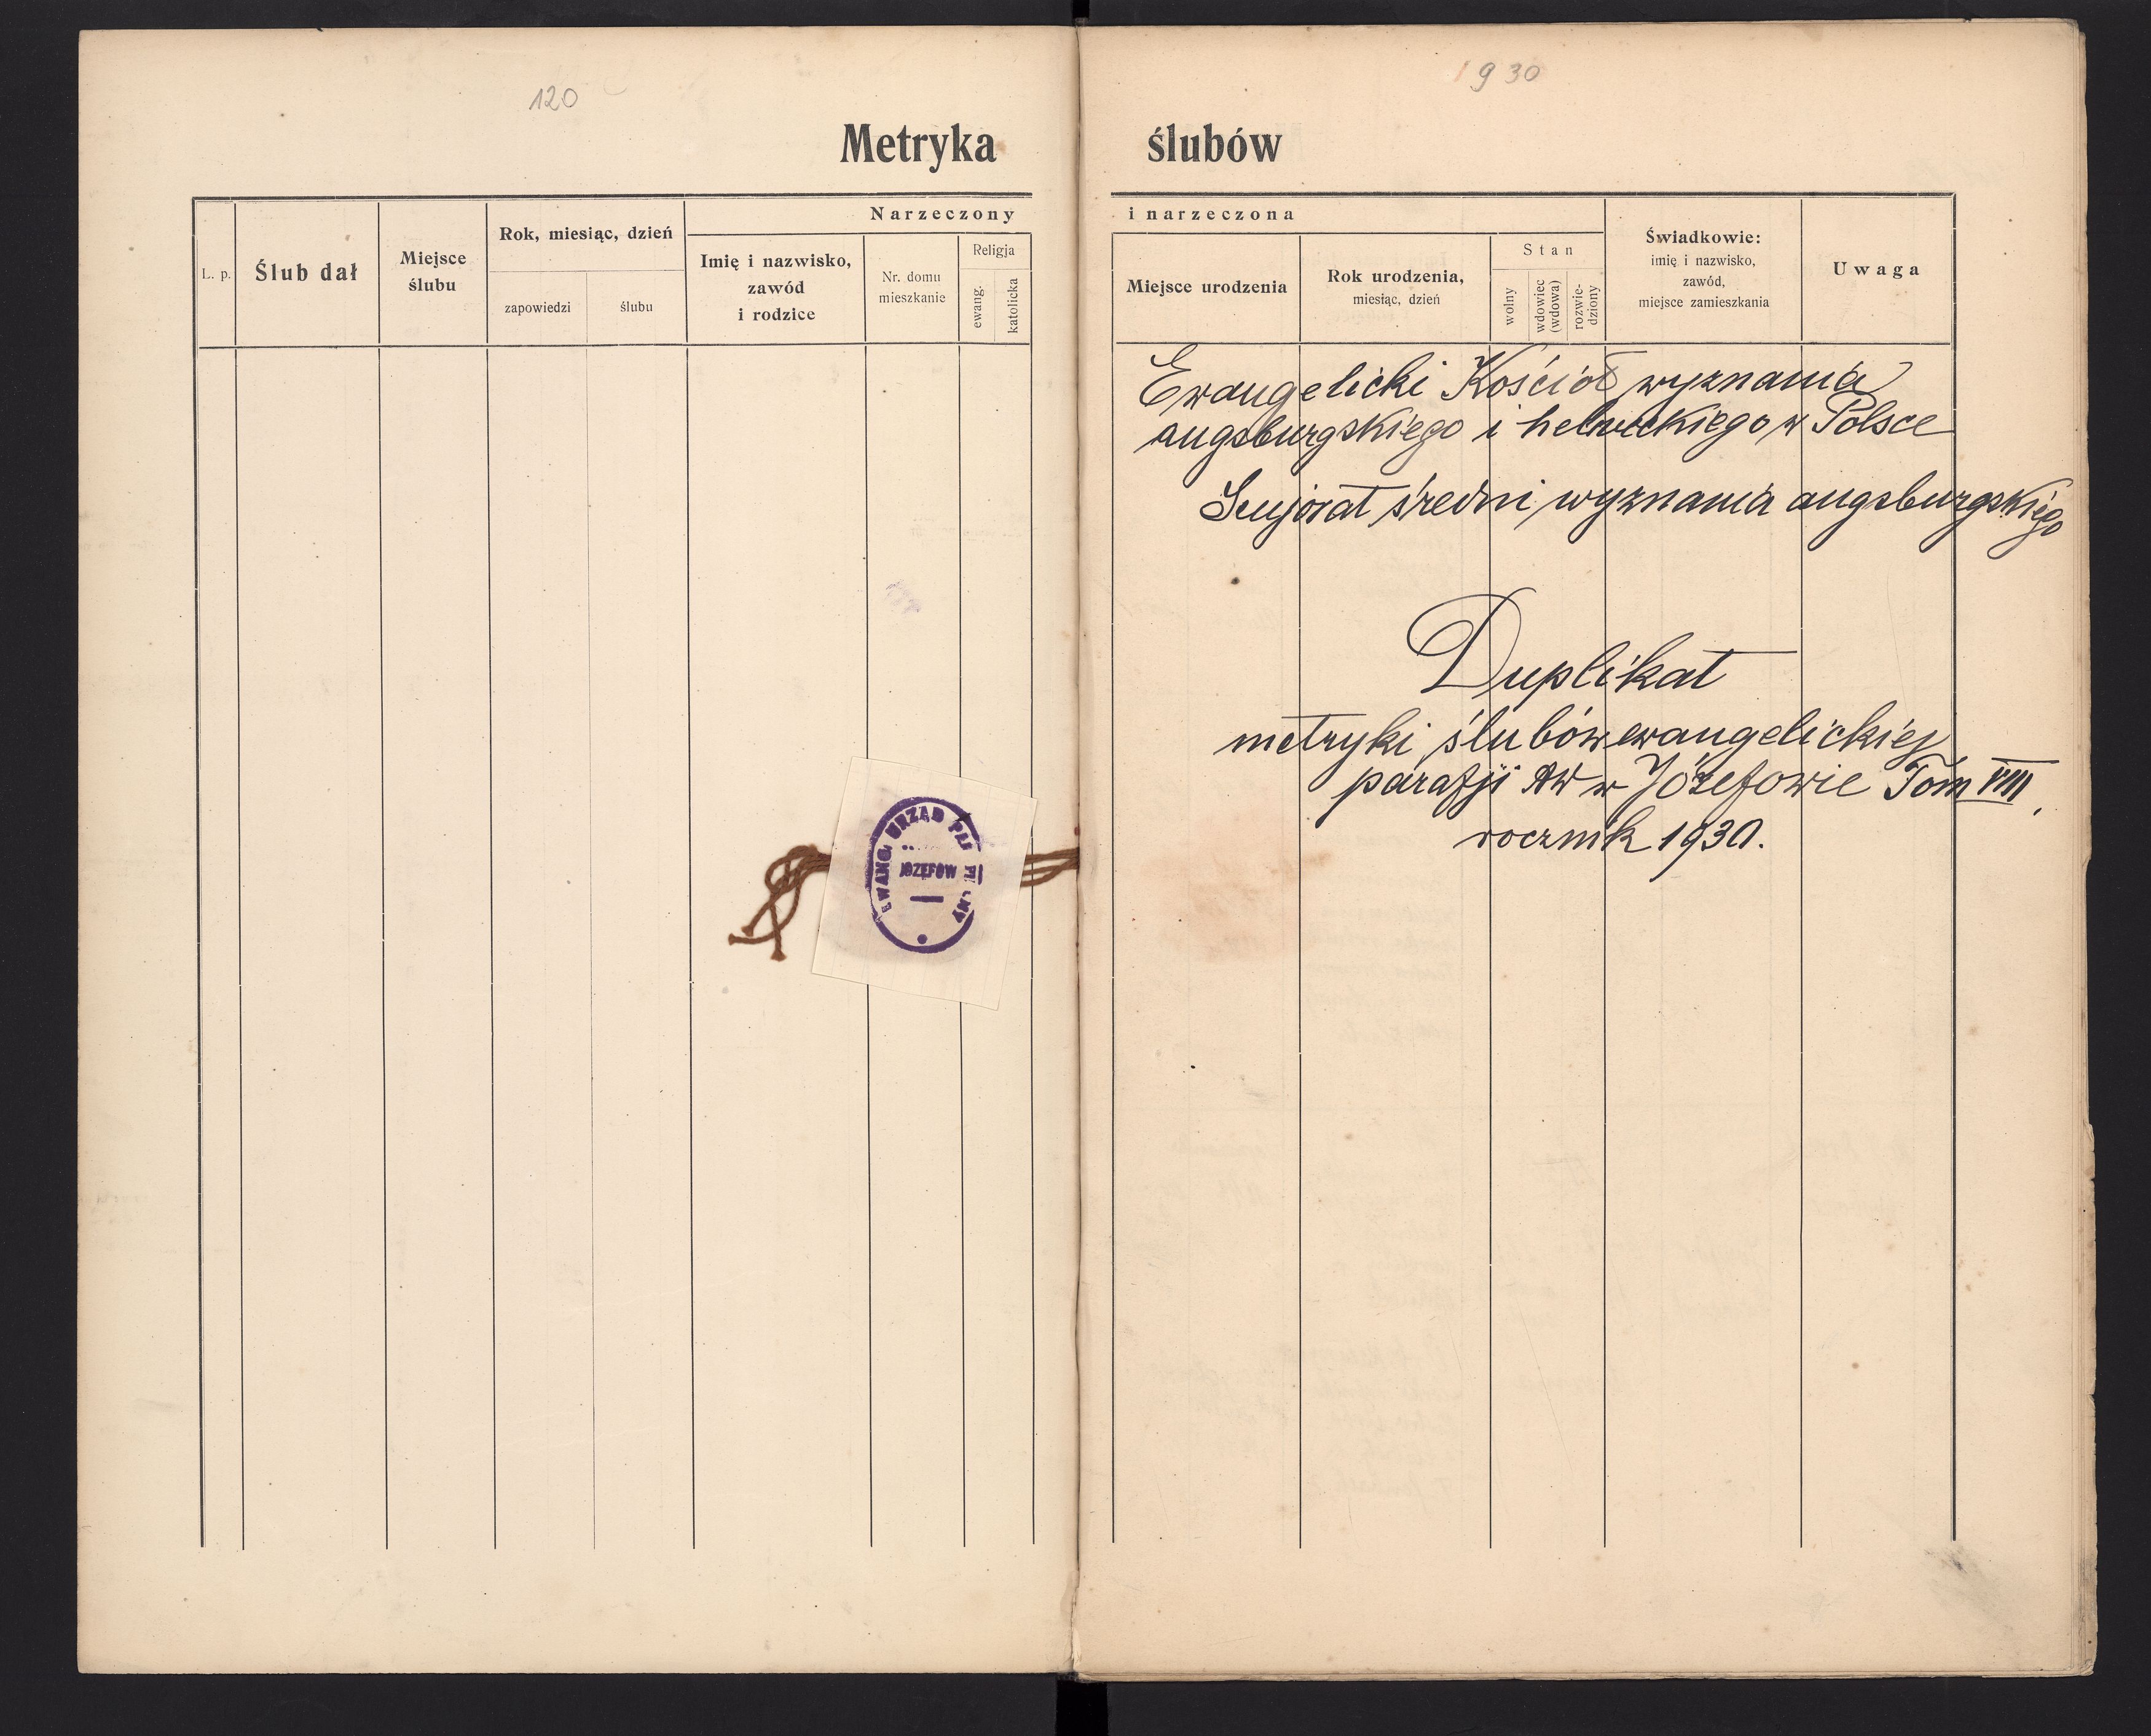 120
1930
Metryka ślubów
Narzeczony i narzeczona
L. p.
Ślub dał
Miejsce
ślubu
Rok, miesiąc, dzień
zapowiedzi
ślubu
Imię i nazwisko,
zawód
i rodzice
Nr. domu
mieszkanie
Religja
ewang.
katolicka
Miejsce urodzenia
Rok urodzenia,
miesiąc, dzień
Stan
wolny
wdowiec
(wdowa)
rozwie-
dziony
Świadkowie:
imię i nazwisko,
zawód,
miejsce zamieszkania
Uwaga
Ewangelicki Kościoł wyznania
augsburgskiego i helweckiego w Polsce
Senjorat średni wyznania augsburgskiego
Duplikat
metryki ślubów ewangelickiej
parafji AW w Józefowie Tom VIII,
rocznik 1930.
EWANG. URZĄD
JOZEFOW